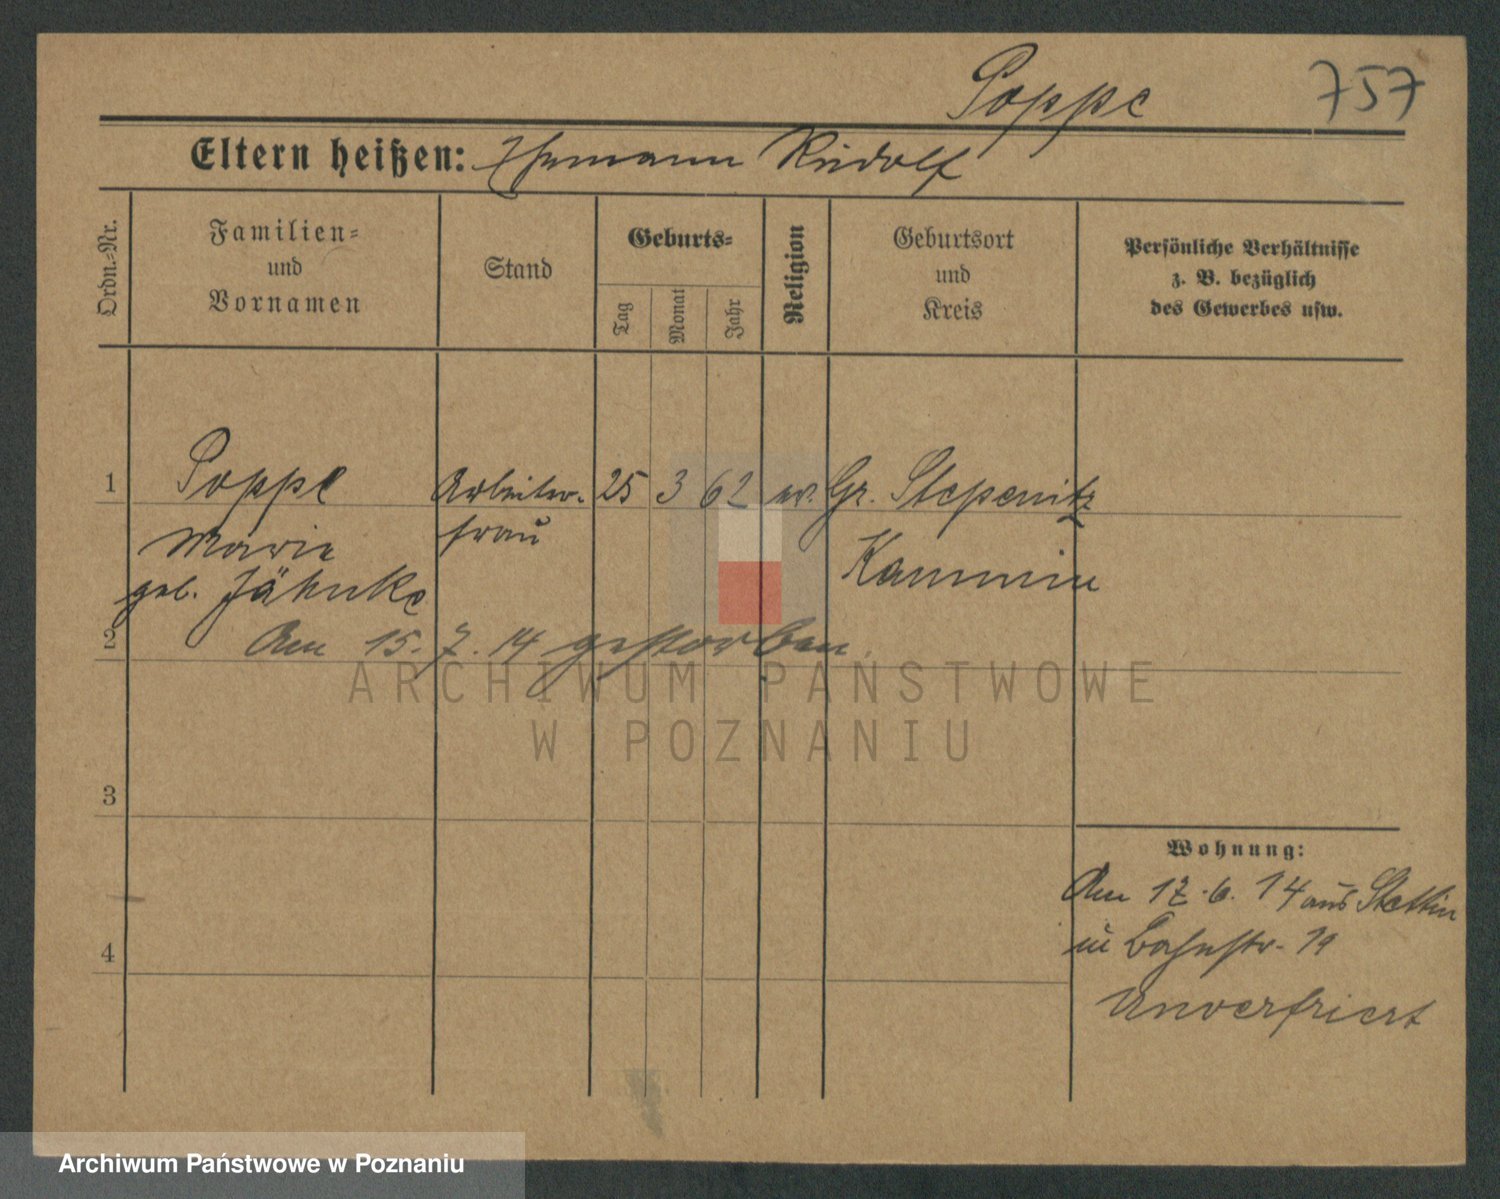 Poppe 757
Eltern heißen: Ehemann Rudolf
Ordn.-Nr.
Familien-
und
Vornamen
Stand
Geburts-
Tag
Monat
Jahr
Religion
Geburtsort
und
Kreis
Persönliche Verhältnisse
z. B. bezüglich
des Gewerbes usw.
1 Poppe Arbeiter- 25 3 62 ev. Gr. Stepenitz
Marie frau Kammin
geb. Jähnke
2 Am 15. 7. 14 gestorben.
ARCHIWUM PAŃSTWOWE
W POZNANIU
3
Wohnung:
Am 17. 6. 14 aus Stettin
in Bahnstr. 19
4
Archiwum Państwowe w Poznaniu